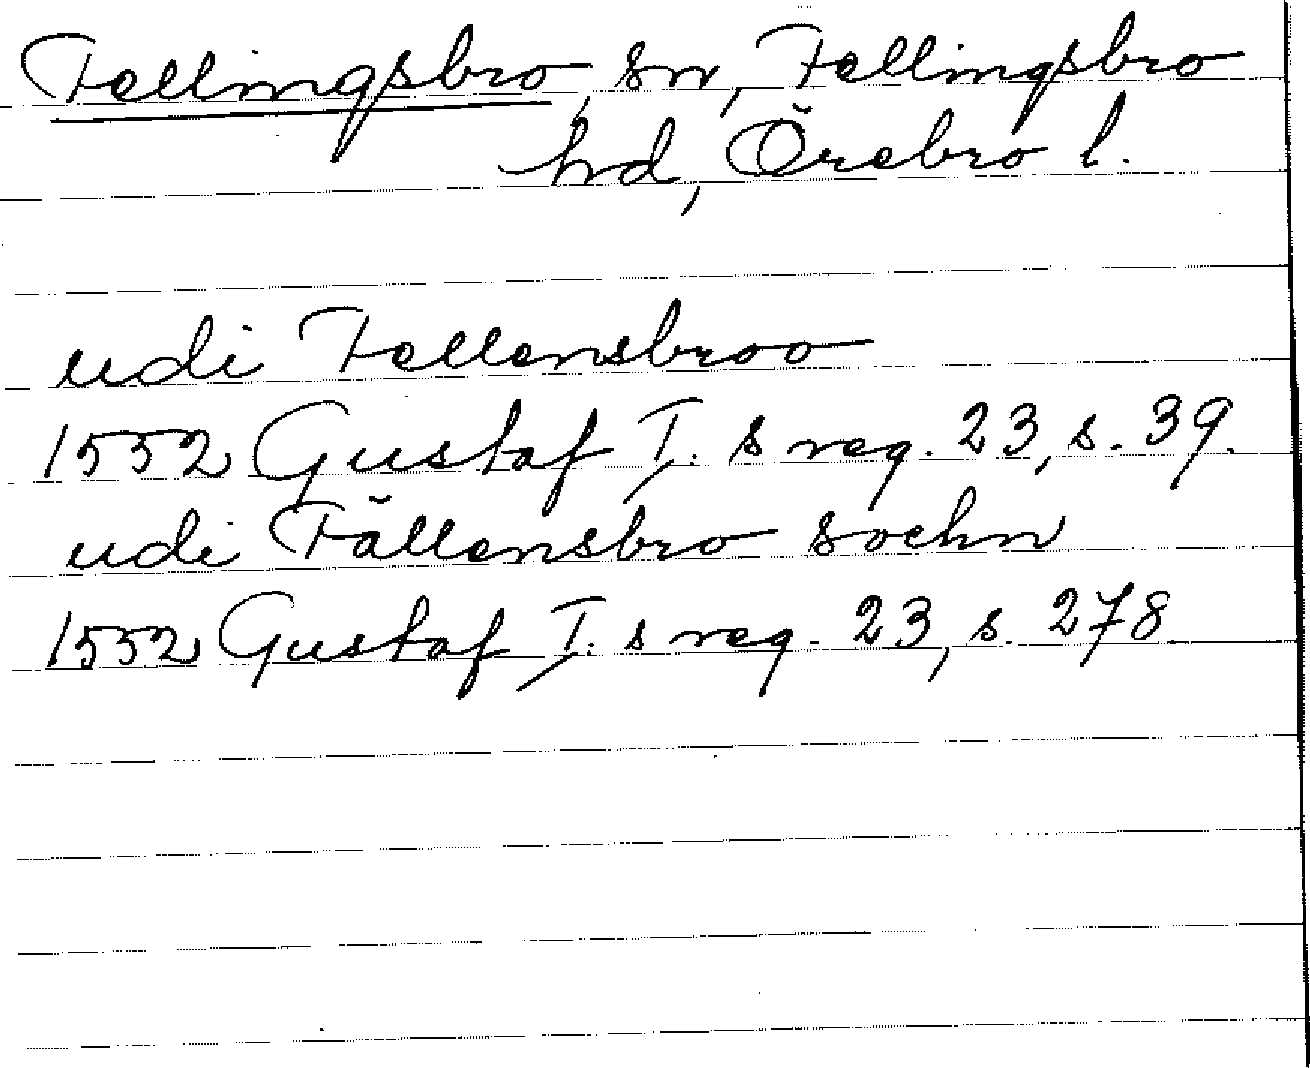 Fellingsbro, sn, Fellingsbro
hd, Örebro l.
udi Fellensbroo
1552 Gustaf I. s reg. 23, s. 39.
udi Fällensbro sochn
1552 Gustaf I. s reg. 23, s. 278